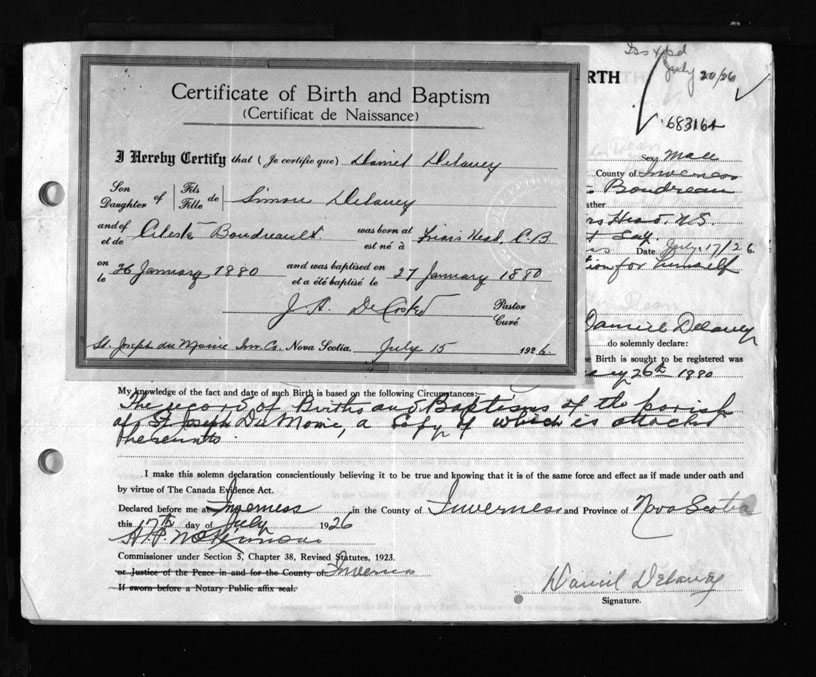 Iss & pd
July 20/26
RTH
683164
Certificate of Birth and Baptism
(Certificat de Naissance)
I Hereby Certify that (Je certifie que) Daniel Delaney
Son Daughter of Fils Fille de Simon Delaney
and of et de Celeste Boudreault was born at est né à Friars Head, C.B
on le 26 January 1880 and was baptised on et a été baptisé le 27 January 1880
J. A. DeCosted Pastor Curé
St. Joseph du Moine Inv. Co. Nova Scotia, July 15 1926.
Sex Male
County of Inverness
Boudreau
ather
rs Head, N.S.
Date July 17/26
tion for himself
Daniel Delaney
do solemnly declare:
e Birth is sought to be registered was
ary 26th 1880
My knowledge of the fact and date of such Birth is based on the following Circumstances:—
The record of Births and Baptisms of the parish
of St Joseph Du Moine, a Copy of which is attached
thereunto.
I make this solemn declaration conscientiously believing it to be true and knowing that it is of the same force and effect as if made under oath and
by virtue of The Canada Evidence Act.
Declared before me at Inverness in the County of Inverness and Province of Nova Scotia
this 17th day of July 1926
Commissioner under Section 5, Chapter 38, Revised Statutes, 1923.
or Justice of the Peace in and for the County of Inverness
If sworn before a Notary Public affix seal.
Daniel Delaney
Signature.